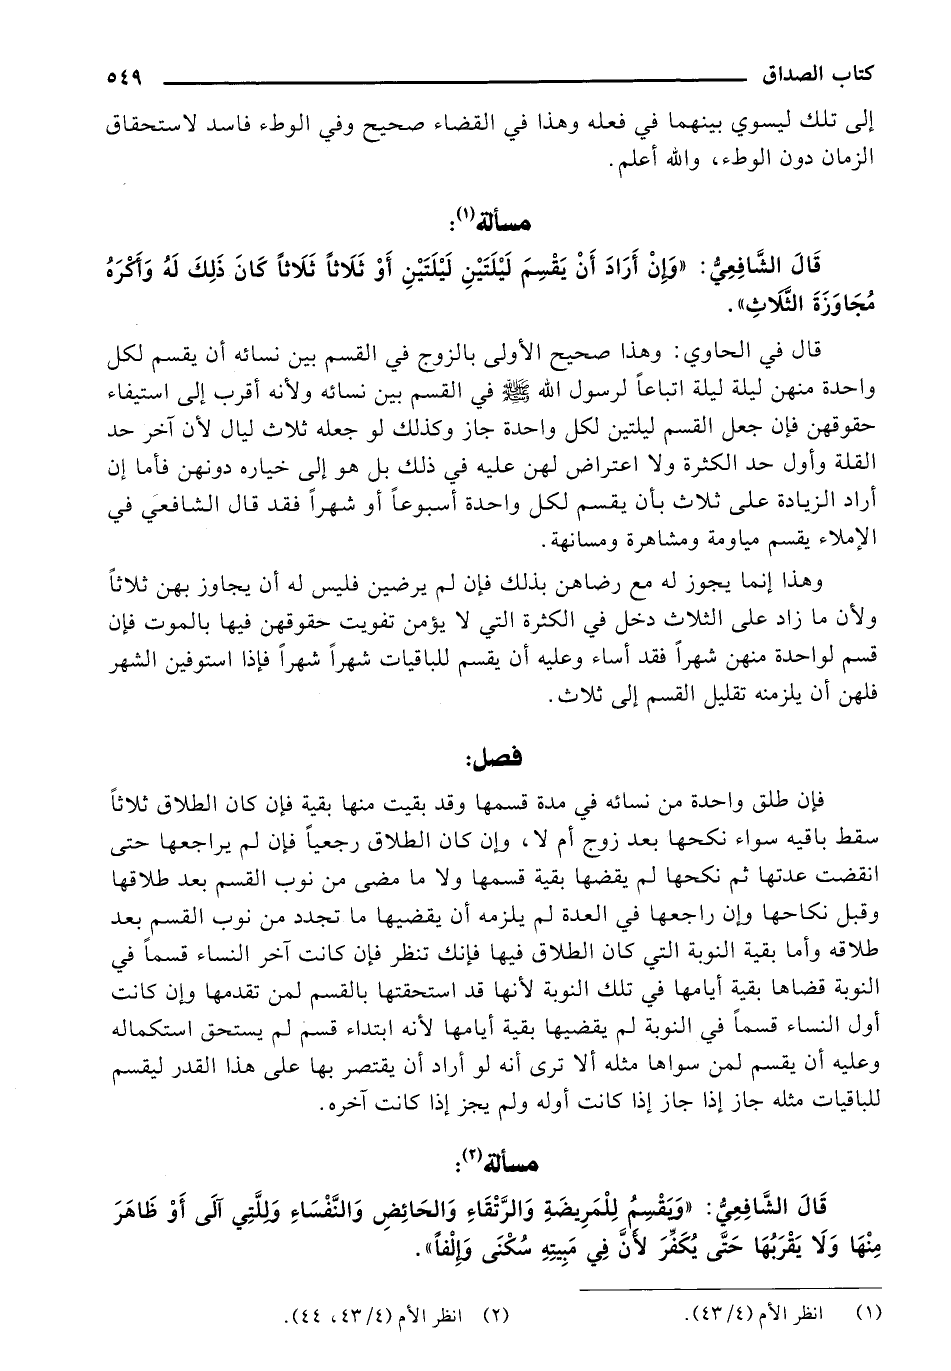 كتاب الصداق ٥٤٩
إلى تلك ليسوي بينهما في فعله وهذا في القضاء صحيح وفي الوطء فاسد لاستحقاق
الزمان دون الوطء، والله أعلم.
مسألة(١):
قَالَ الشَّافِعِيُّ: «وَإِنْ أَرَادَ أَنْ يَقْسِمَ لَيْلَتَيْنِ لَيْلَتَيْنِ أَوْ ثَلَاثاً ثَلَاثاً كَانَ ذَلِكَ لَهُ وَأَكْرَهُ
مُجَاوَزَةَ الثَّلَاثِ».
قال في الحاوي: وهذا صحيح الأولى بالزوج في القسم بين نسائه أن يقسم لكل
واحدة منهن ليلة ليلة اتباعاً لرسول الله ﷺ في القسم بين نسائه ولأنه أقرب إلى استيفاء
حقوقهن فإن جعل القسم ليلتين لكل واحدة جاز وكذلك لو جعله ثلاث ليال لأن آخر حد
القلة وأول حد الكثرة ولا اعتراض لهن عليه في ذلك بل هو إلى خياره دونهن فأما إن
أراد الزيادة على ثلاث بأن يقسم لكل واحدة أسبوعاً أو شهراً فقد قال الشافعي في
الإملاء يقسم مياومة ومشاهرة ومسانهة.
وهذا إنما يجوز له مع رضاهن بذلك فإن لم يرضين فليس له أن يجاوز بهن ثلاثاً
ولأن ما زاد على الثلاث دخل في الكثرة التي لا يؤمن تفويت حقوقهن فيها بالموت فإن
قسم لواحدة منهن شهراً فقد أساء وعليه أن يقسم للباقيات شهراً شهراً فإذا استوفين الشهر
فلهن أن يلزمنه تقليل القسم إلى ثلاث.
فصل:
فإن طلق واحدة من نسائه في مدة قسمها وقد بقيت منها بقية فإن كان الطلاق ثلاثاً
سقط باقيه سواء نكحها بعد زوج أم لا، وإن كان الطلاق رجعياً فإن لم يراجعها حتى
انقضت عدتها ثم نكحها لم يقضها بقية قسمها ولا ما مضى من نوب القسم بعد طلاقها
وقبل نكاحها وإن راجعها في العدة لم يلزمه أن يقضيها ما تجدد من نوب القسم بعد
طلاقه وأما بقية النوبة التي كان الطلاق فيها فإنك تنظر فإن كانت آخر النساء قسماً في
النوبة قضاها بقية أيامها في تلك النوبة لأنها قد استحقتها بالقسم لمن تقدمها وإن كانت
أول النساء قسماً في النوبة لم يقضيها بقية أيامها لأنه ابتداء قسم لم يستحق استكماله
وعليه أن يقسم لمن سواها مثله ألا ترى أنه لو أراد أن يقتصر بها على هذا القدر ليقسم
للباقيات مثله جاز إذا جاز إذا كانت أوله ولم يجز إذا كانت آخره.
مسألة(٢):
قَالَ الشَّافِعِيُّ: «وَيَقْسِمُ لِلْمَرِيضَةِ وَالرَّتْقَاءِ وَالحَائِضِ وَالنَّفْسَاءِ وَلِلَّتِي آلَى أَوْ ظَاهَرَ
مِنْهَا وَلَا يَقْرَبُهَا حَتَّى يُكَفِّرَ لأَنَّ فِي مَبِيتِهِ سُكْنَى وَإِلْفاً».
(١) انظر الأم (٤/ ٤٣). (٢) انظر الأم (٤/ ٤٣، ٤٤).